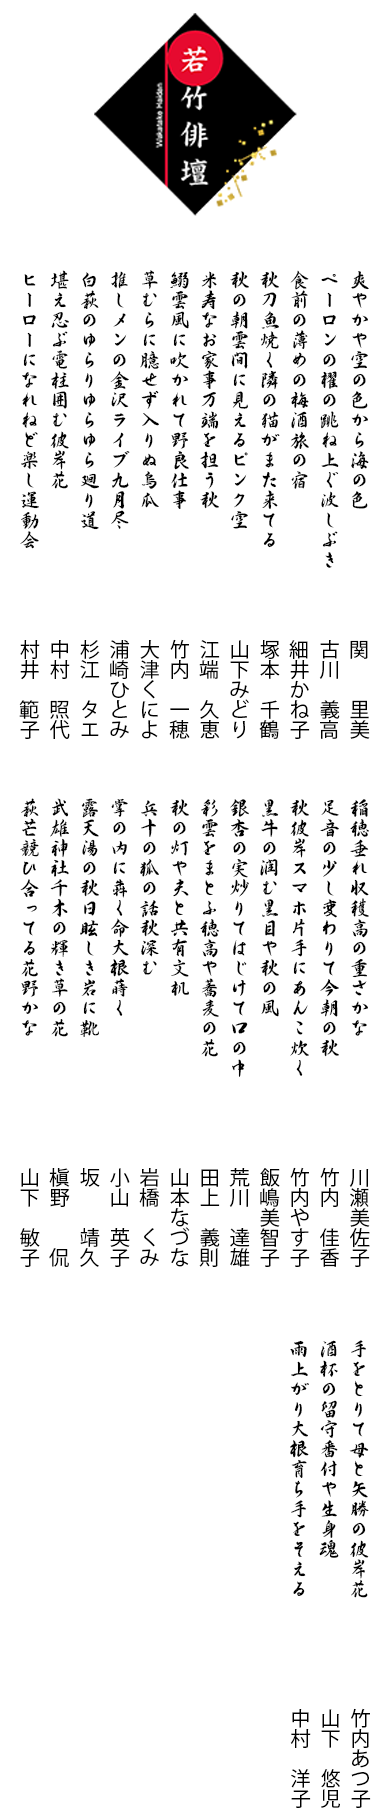 若竹俳壇
Wakatake Haidan
爽やかや空の色から海の色
関 里美
ペーロンの櫂の跳ね上ぐ波しぶき
古川 義高
食前の薄めの梅酒旅の宿
細井かね子
秋刀魚焼く隣の猫がまた来てる
塚本 千鶴
秋の朝雲間に見えるピンク空
山下みどり
米寿なお家事万端を担う秋
江端 久恵
鰯雲風に吹かれて野良仕事
竹内 一穂
草むらに臆せず入りぬ烏瓜
大津くによ
推しメンの金沢ライブ九月尽
浦崎ひとみ
白萩のゆらりゆらゆら廻り道
杉江 タエ
堪え忍ぶ電柱囲む彼岸花
中村 照代
ヒーローになれねど楽し運動会
村井 範子
稲穂垂れ収穫高の重さかな
川瀬美佐子
足音の少し変わりて今朝の秋
竹内 佳香
秋彼岸スマホ片手にあんこ炊く
竹内やす子
黒牛の潤む黒目や秋の風
飯嶋美智子
銀杏の実炒りてはじけて口の中
荒川 達雄
彩雲をまとふ穂高や蕎麦の花
田上 義則
秋の灯や夫と共有文机
山本なづな
兵十の狐の話秋深む
岩橋 くみ
掌の内に犇く命大根蒔く
小山 英子
露天湯の秋日眩しき岩に靴
坂 靖久
武雄神社千木の輝き草の花
槇野 侃
萩芒競ひ合ってる花野かな
山下 敏子
手をとりて母と矢勝の彼岸花
竹内あつ子
酒杯の留守番付や生身魂
山下 悠児
雨上がり大根育ち手をそえる
中村 洋子